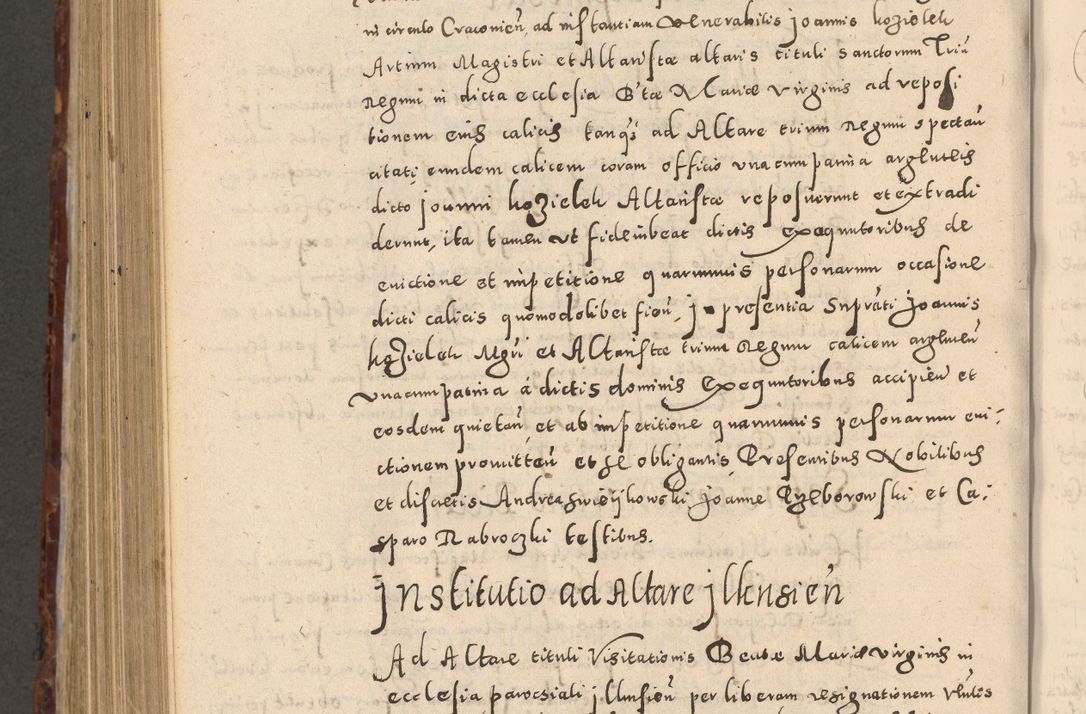 in circulo Cracovien, ad instantiam Venerabilis Joannis kozielek
Artium Magistri et Altaristæ altaris tituli sanctorum Triu
Regum in dicta ecclesia B'tæ Mariæ virginis ad reposi
tionem eius calicis tanq; ad Altare trium Regum spectan
citati eundem calicem coram officio una cum patina argenteis
dicto Joanni kozielek Altaristæ reposuerunt et extradi
derunt, ita tamen ut fideiubeat dictis exequutoribus de
evictione et impetitione quarumvis personarum occasione
dicti calicis quomodolibet fien, In presentia Suprati Joannis
kozielek Mgri et Altaristæ trium Regum calicem argenteu
una cum patina á dictis dominis Exequutoribus accipien et
eosdem quietan, et ab impetitione quarumvis personarum evi:
ctionem promitten et se obligantis, Presentibus Nobilibus
et discretis Andrea Joanne Rzeborowski et Ca:
sparo Nabroczki testibus.
Institutio ad Altare Jllensien
Ad Altare tituli Visitationis Beatæ Mariæ virginis in
ecclesia parochiali Jllusien per liberam resignationem Vlutis